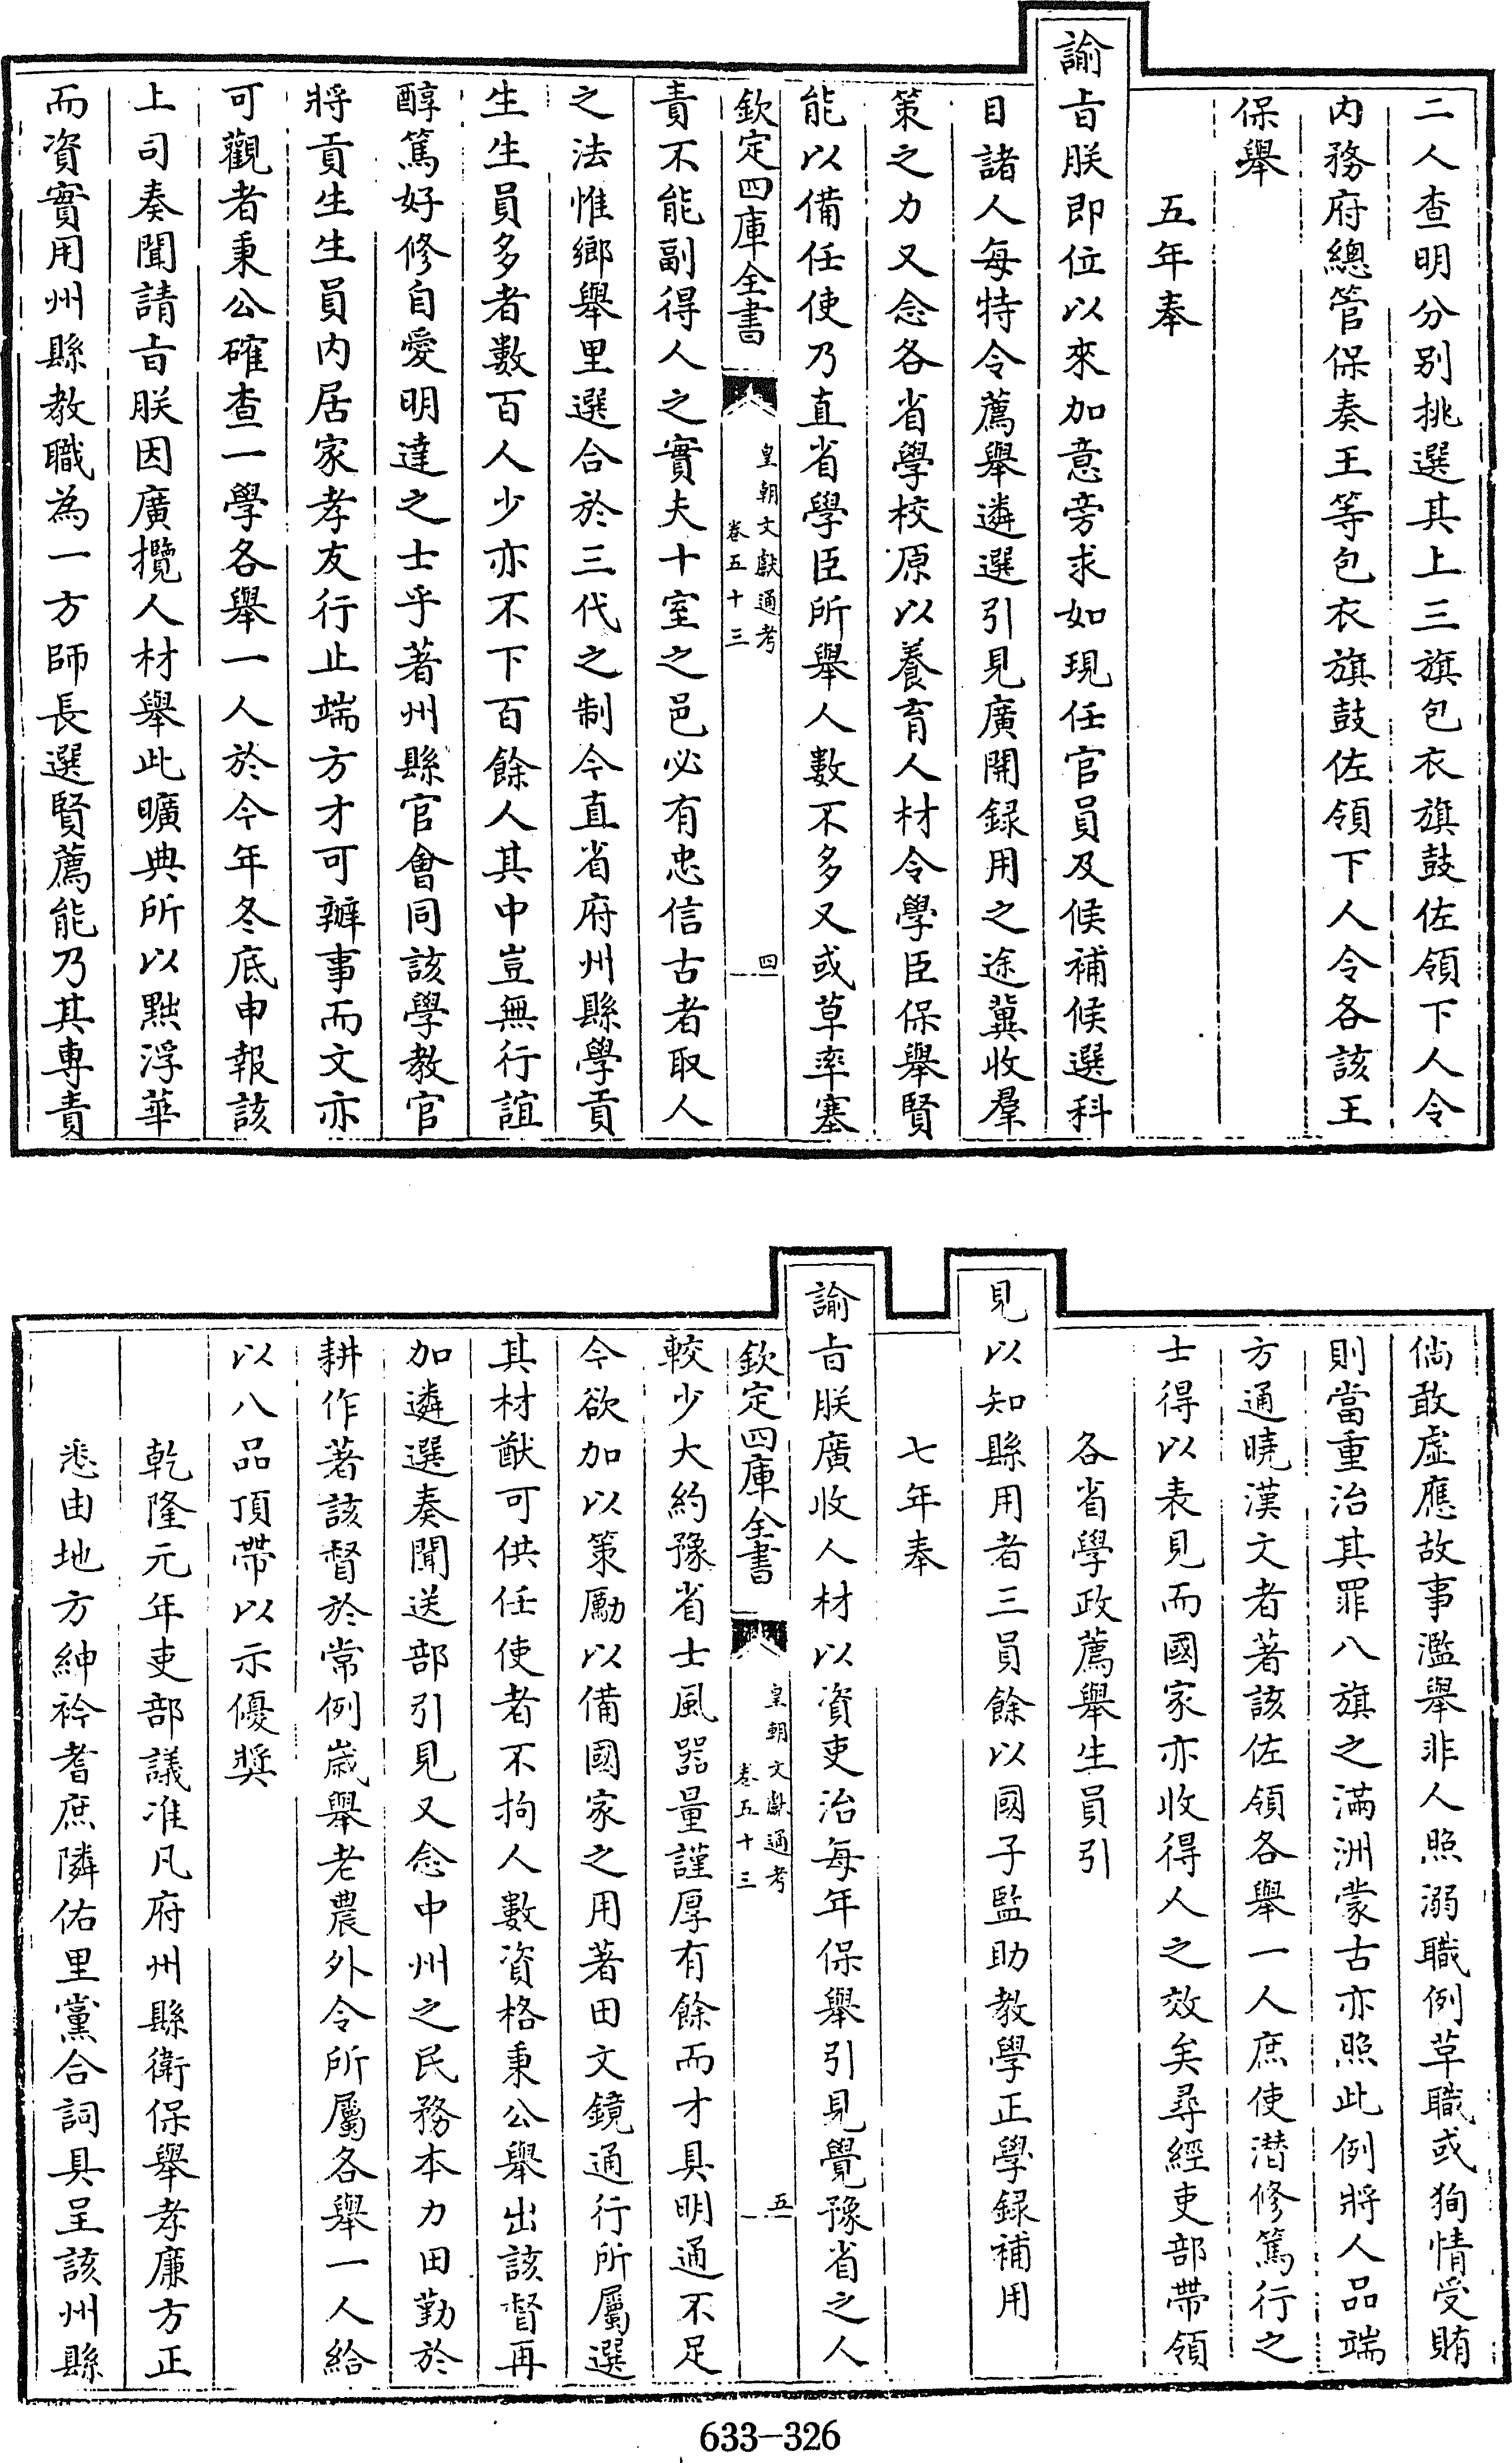 二人查明分别挑選其上三旗包衣旗鼓佐領下人令
内務府總管保奏王等包衣旗鼓佐領下人令各該王
保舉
五年奉
諭旨朕即位以來加意旁求如現任官員及候補候選科
目諸人每特令薦舉遴選引見廣開録用之途冀收羣
策之力又念各省學校原以養育人材令學臣保舉賢
能以備任使乃直省學臣所舉人數不多又或草率塞
欽定四庫全書
皇朝文獻通考
卷五十三
四
責不能副得人之實夫十室之邑必有忠信古者取人
之法惟鄉舉里選合於三代之制今直省府州縣學貢
生生員多者數百人少亦不下百餘人其中豈無行誼
醇篤好修自愛明達之士乎著州縣官會同該學教官
將貢生生員内居家孝友行止端方才可辦事而文亦
可觀者秉公確查一學各舉一人於今年冬底申報該
上司奏聞請旨朕因廣攬人材舉此曠典所以黜浮華
而資實用州縣教職為一方師長選賢薦能乃其專責
倘敢虛應故事濫舉非人照溺職例草職或狥情受賄
則當重治其罪八旗之滿洲蒙古亦照此例將人品端
方通曉漢文者著該佐領各舉一人庶使潛修篤行之
士得以表見而國家亦收得人之效矣尋經吏部帶領
各省學政薦舉生員引
見以知縣用者三員餘以國子監助教學正學録補用
七年奉
諭旨朕廣收人材以資吏治每年保舉引見覺豫省之人
欽定四庫全書
皇朝文獻通考
卷五十三
五
較少大約豫省士風器量謹厚有餘而才具明通不足
今欲加以策勵以備國家之用著田文鏡通行所屬選
其材猷可供任使者不拘人數資格秉公舉出該督再
加遴選奏聞送部引見又念中州之民務本力田勤於
耕作著該督於常例歲舉老農外令所屬各舉一人給
以八品頂帶以示優獎
乾隆元年吏部議准凡府州縣衛保舉孝廉方正
悉由地方紳衿耆庶隣佑里黨合詞具呈該州縣
633-326